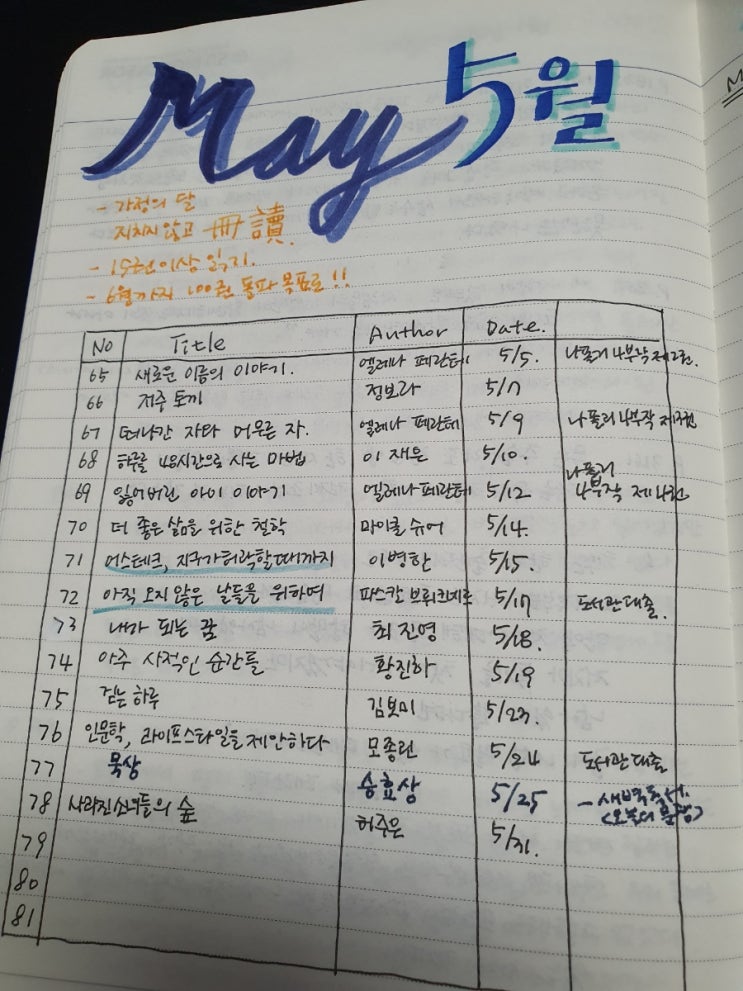 May 5월
- 가정의 달
지치지 않고 冊讀.
- 15권이상 읽기.
- 6월까지 100권 돌파 목표로 !!
No Title Author Date.
65 새로운 이름의 이야기. 엘레나 페란테 5/5. 나폴리 4부작 제2권.
66 저주 토끼 정보라 5/7
67 떠나간 자와 머무른 자. 엘레나 페란테 5/9 나폴리 4부작 제3권
68 하루를 48시간으로 사는 마법 이 재은 5/10.
69 잃어버린 아이 이야기 엘레나 페란테 5/12 나폴리 4부작 제4권
70 더 좋은 삶을 위한 철학 마이클 슈어 5/14.
71 어스테크, 지구가 허락할 때까지 이병한 5/15.
72 아직 오지 않은 날들을 위하여 파스칼 브뤼크네르 5/17 도서관 대출.
73 내가 되는 꿈 최 진영 5/18.
74 아주 사적인 순간들 황진하 5/19
75 걷는 하루 김보미 5/23.
76 인문학, 라이프스타일을 제안하다 모종린 5/24 도서관 대출
77 묵상 승효상 5/25 - 새벽독서.
<오늘의 문장>
78 사라진 소녀들의 숲 허주은 5/31.
79
80
81
M